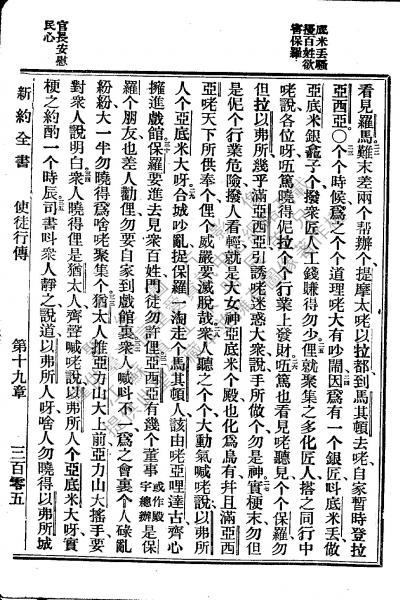 底米丟騷
擾百姓欲
害保羅
看見羅馬、難末差兩个帮辦个、提摩太咾以拉都到馬其頓去咾、自家暫時登拉
亞西亞○个个時候、爲之个个道理咾大有吵鬧、因爲有一个銀匠呌底米丟、做
亞底米銀龕子个、撥衆匠人工錢賺得勿少、俚就聚集之多化匠人、搭之同行中
咾說、各位呀、伍篤曉得伲拉个个行業上發財、伍篤也看見咾聽見个个保羅、勿
但拉以弗所、幾乎滿亞西亞、引誘咾迷惑大衆、說手所做个勿是神、實梗末勿但
是伲个行業危險、撥人看輕、就是大女神亞底米个殿也化爲烏有、并且滿亞西
亞咾天下所供奉个、俚个威嚴要滅脫哉、衆人聽之个个、大動氣喊咾說、以弗所
人个亞底米大呀、合城吵亂、捉保羅一淘走个馬其頓人、該由咾亞哩達古、齊心
擁進戲館、保羅要進去見衆百姓、門徒勿許俚、亞西亞有幾个董事或作殿宇總辦是保
羅个朋友、也差人勸俚勿要自家到戲館裏、衆人喊呌不一、爲之會裏个人碌亂
紛紛、大一半勿曉得爲啥咾聚集个、猶太人推亞力山大上前、亞力山大搖手、要
對衆人說明白、衆人曉得俚是猶太人、齊聲喊咾說、以弗所人个亞底米大呀、實
梗之約酌一个時辰、司書呌衆人靜之說道、以弗所人呀、啥人勿曉得以弗所城
官長安慰
民心
新約全書 使徒行傳 第十九章 三百零五